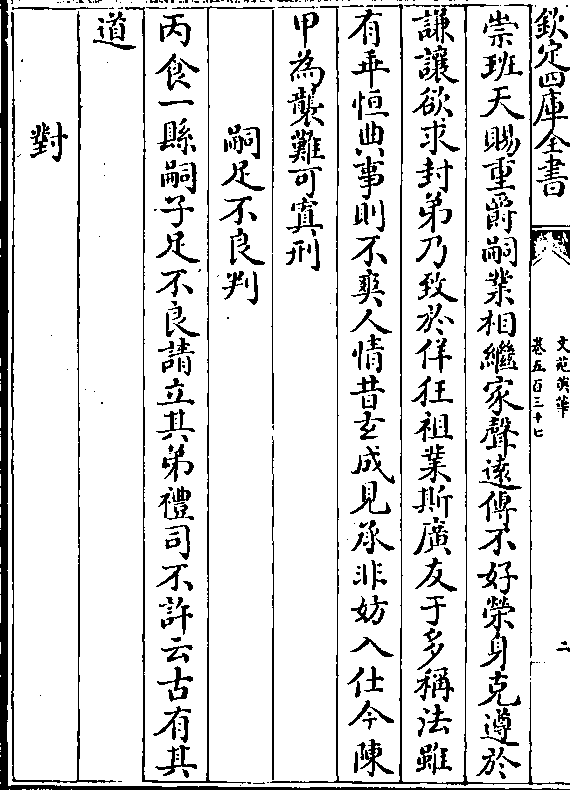 欽定四庫全書
文苑英華
卷五百三十七
二
崇班天賜重爵嗣業相繼家聲遠傳不好榮身克遵於
謙讓欲求封弟乃致於佯狂祖業斯廣友于多稱法雖
有乖恒典事則不爽人情昔玄成見承非妨入仕今陳
甲為襲難可寘刑
嗣足不良判
丙食一縣嗣子足不良請立其弟禮司不許云古有其
道
對